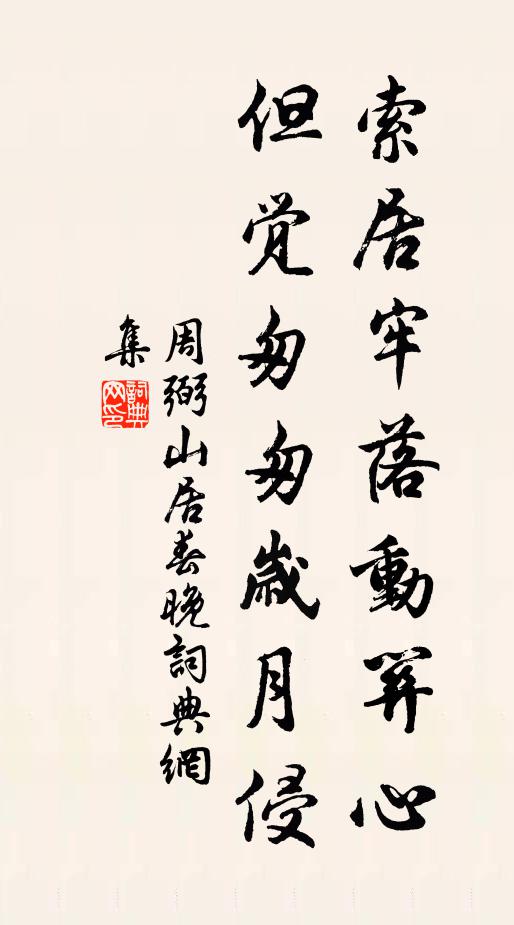 索居牢落動心
但觉匆匆歲月侵
周弼山居春晚詞典網
集
詞典网印